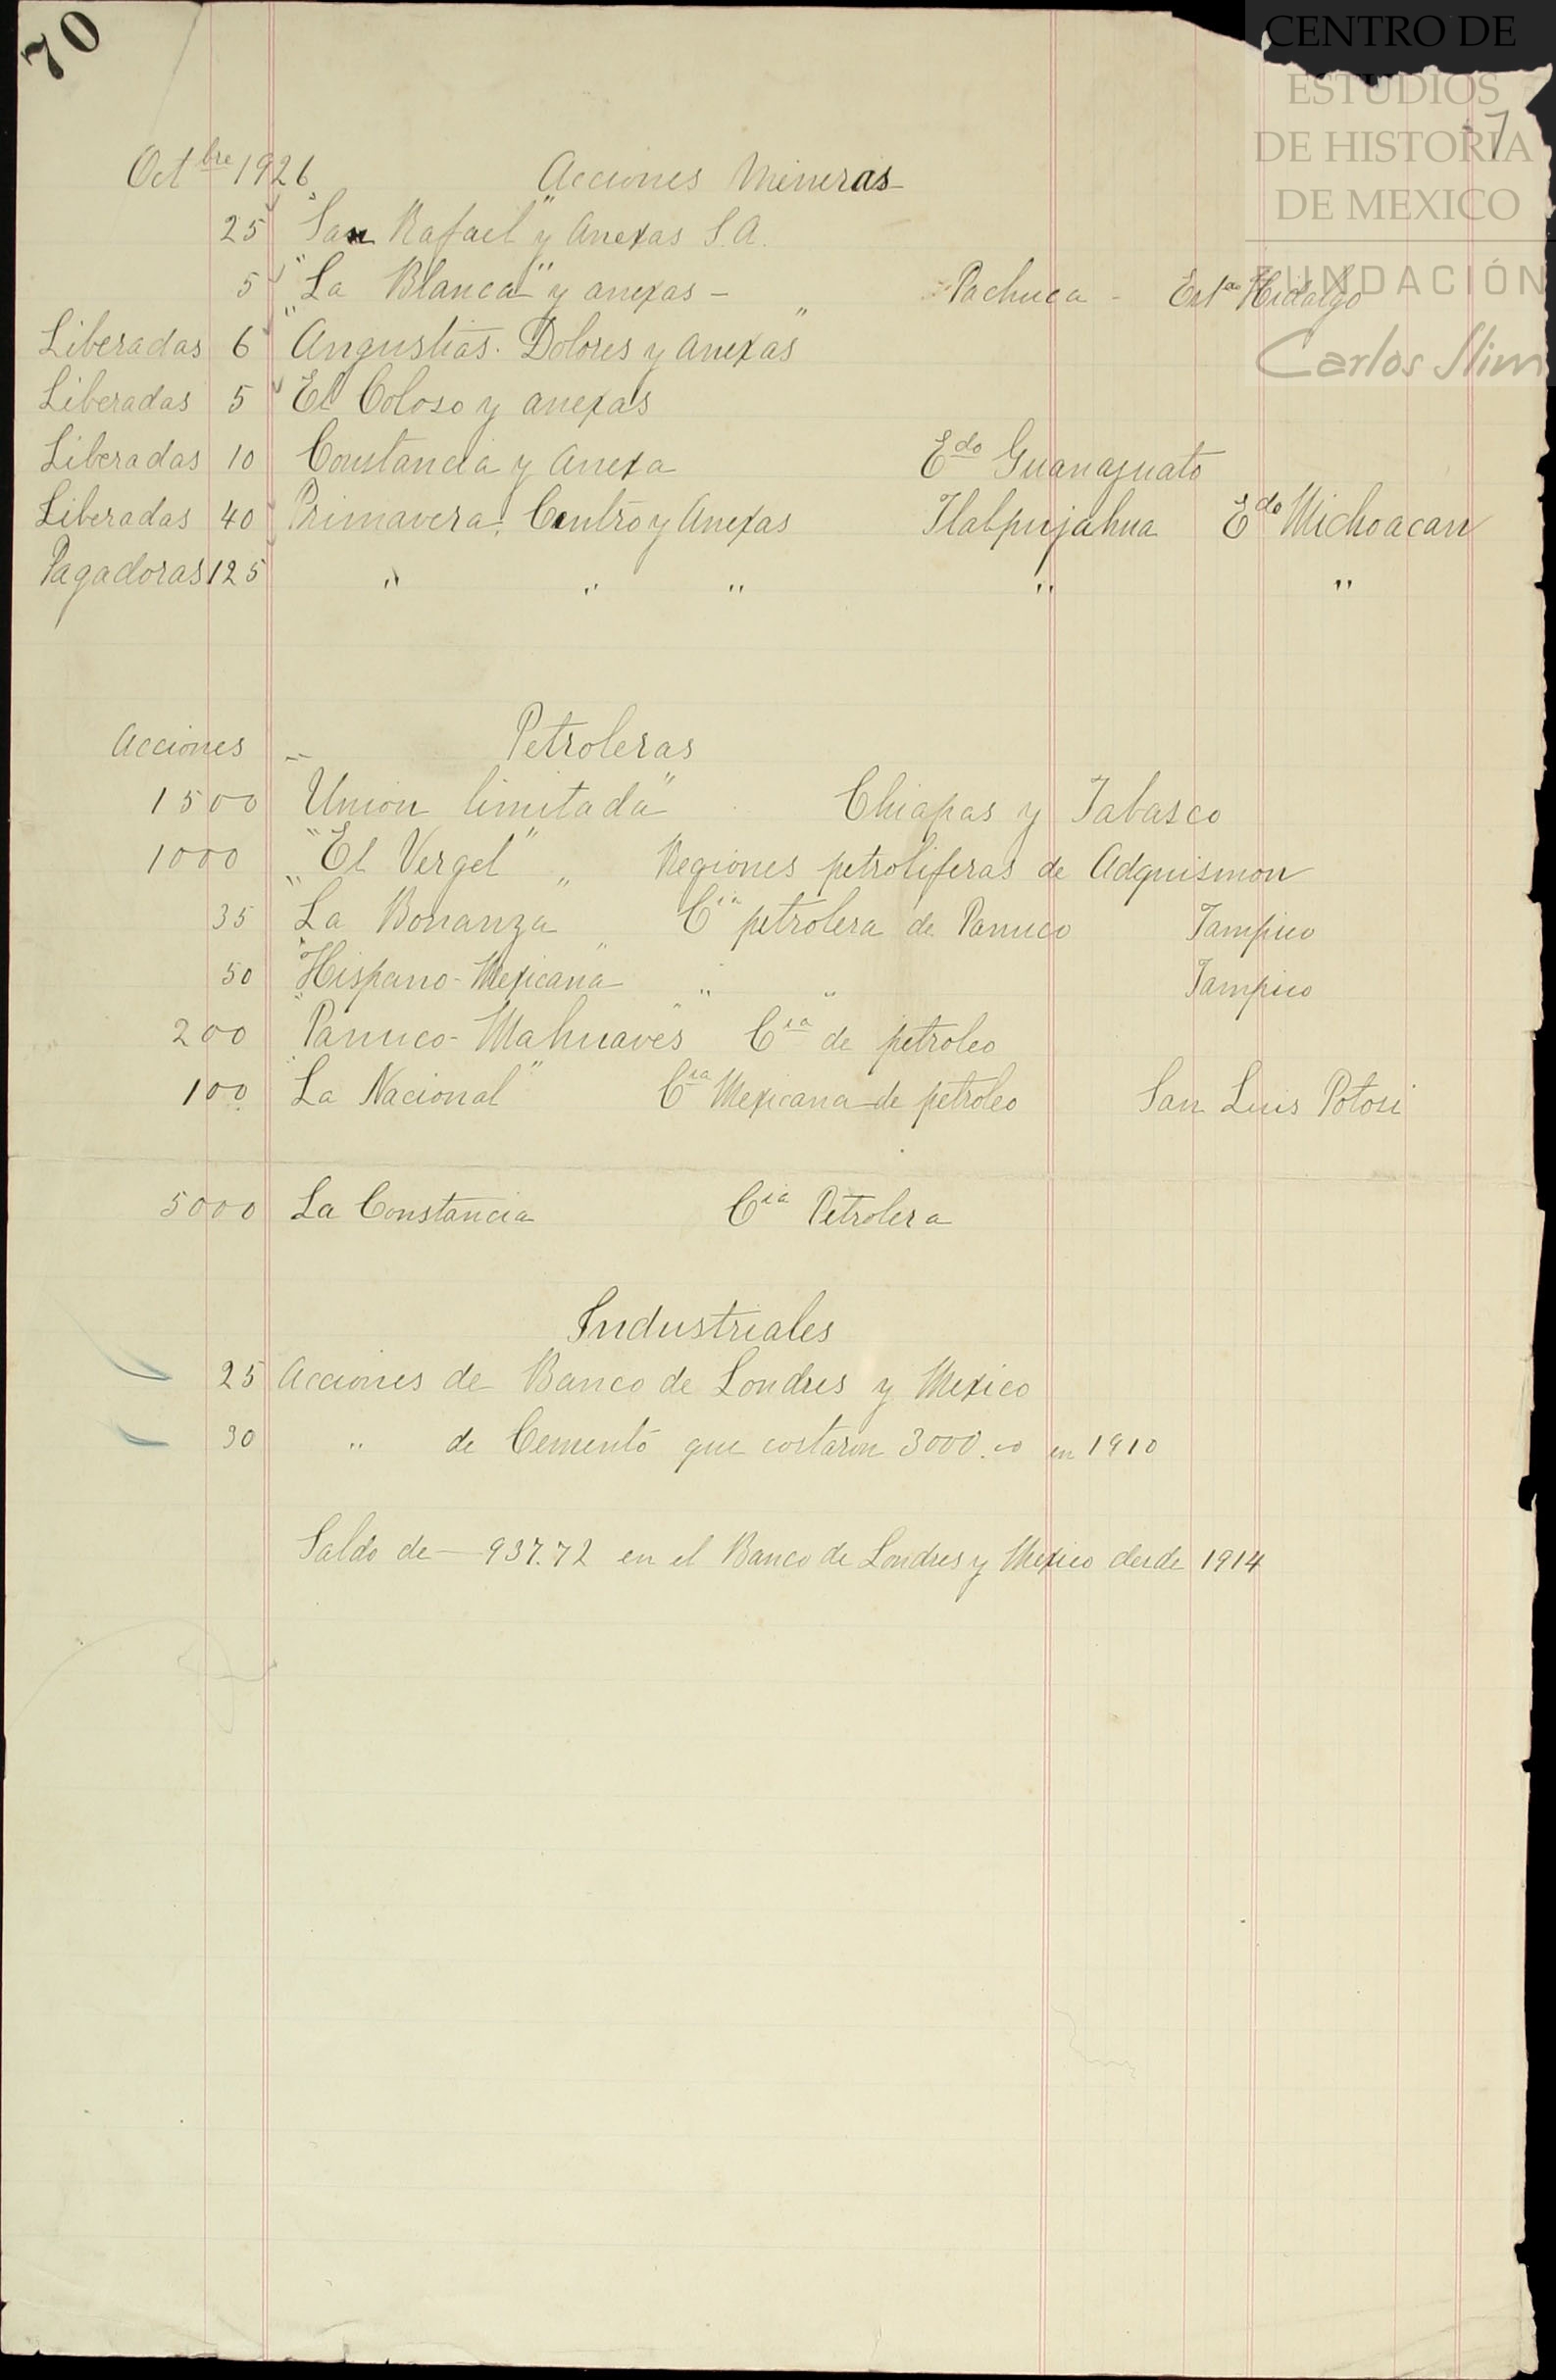 70
CENTRO DE
ESTUDIOS
DE HISTORIA
DE MEXICO
FUNDACIÓN
Carlos Slim
7
Octbre 1926 Acciones Mineras
25 "San Rafael" y Anexas S.A.
5 "La Blanca" y anexas - Pachuca - Esto Hidalgo
Liberadas 6 "Angustias. Dolores y Anexas"
Liberadas 5 El Coloso y anexas
Liberadas 10 Constancia y Anexa Edo Guanajuato
Liberadas 40 Primavera, Centro y Anexas Tlalpujahua Edo Michoacan
Pagadoras 125 " " " " "
Acciones Petroleras
1500 "Union limitada" Chiapas y Tabasco
1000 "El Vergel" " Regiones petroliferas de Adquismon
35 "La Bonanza" Cia petrolera de Panuco Tampico
50 "Hispano-Mexicana" " " Tampico
200 "Panuco-Mahuaves" Cia de petroleo
100 "La Nacional" Cia Mexicana de petroleo San Luis Potosi
5000 La Constancia Cia Petrolera
Industriales
25 Acciones de Banco de Londres y Mexico
30 " de Cemento que costaron 3000.00 en 1910
Saldo de - 937.72 en el Banco de Londres y Mexico desde 1914